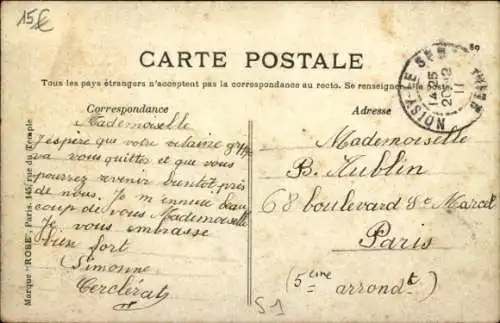 15€
CARTE POSTALE
Tous les pays étrangers n'acceptent pas la correspondance au recto. Se renseigner à la poste.
Correspondance
Mademoiselle
J'espère que votre vilaine grippe
va vous quitter et que vous
pourrez revenir bientot près
de nous. Je m'ennuie beau
coup de vous Mademoiselle
Je vous embrasse
bien fort
Simonne
Marque "ROSE", Paris. 146, rue du Temple
Adresse
Mademoiselle
B. Aublin
68 boulevard St Marcel
Paris
(5ème
arrondt)
NOISY-LE-SEC
SEINE
51